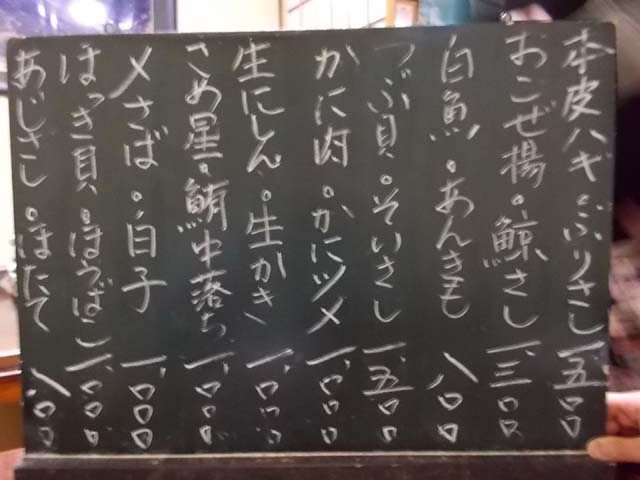 本皮ハギ・ぶりさし 一、五〇〇
おこぜ揚・鯨さし 一、三〇〇
白魚・あんきも 八〇〇
つぶ貝・そいさし 一、五〇〇
かに肉・かにツメ 一、〇〇〇
生にしん・生かき 一、〇〇〇
さめ星・鮪中落ち 一、〇〇〇
〆さば・白子 一、〇〇〇
ほっき貝・ほうぼう 一、〇〇〇
あじさし・ほたて 八〇〇